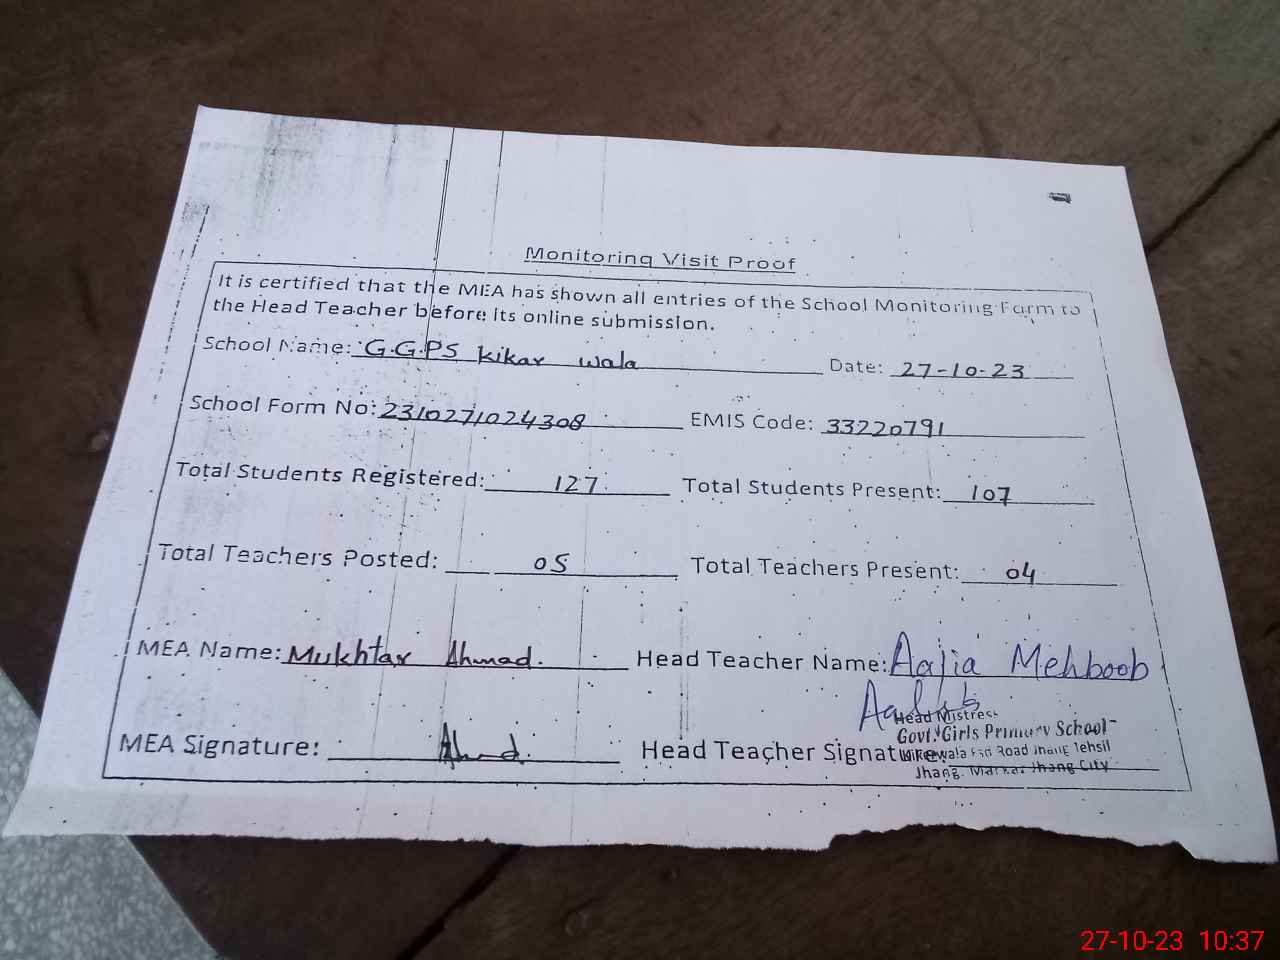 Monitoring Visit Proof
It is certified that the MEA has shown all entries of the School Monitoring Form to
the Head Teacher before its online submission.
School Name: G.G.PS Kikar wala Date: 27-10-23
School Form No: 2310271024308 EMIS Code: 33220791
Total Students Registered: 127 Total Students Present: 107
Total Teachers Posted: 05 Total Teachers Present: 04
MEA Name: Mukhtar Ahmad. Head Teacher Name: Aalia Mehboob
MEA Signature: Ahmd. Head Teacher Signature:
Head Mistress
Govt. Girls Primary School
Road Jhang Tehsil
Jhang. Markaz Jhang City
27-10-23 10:37